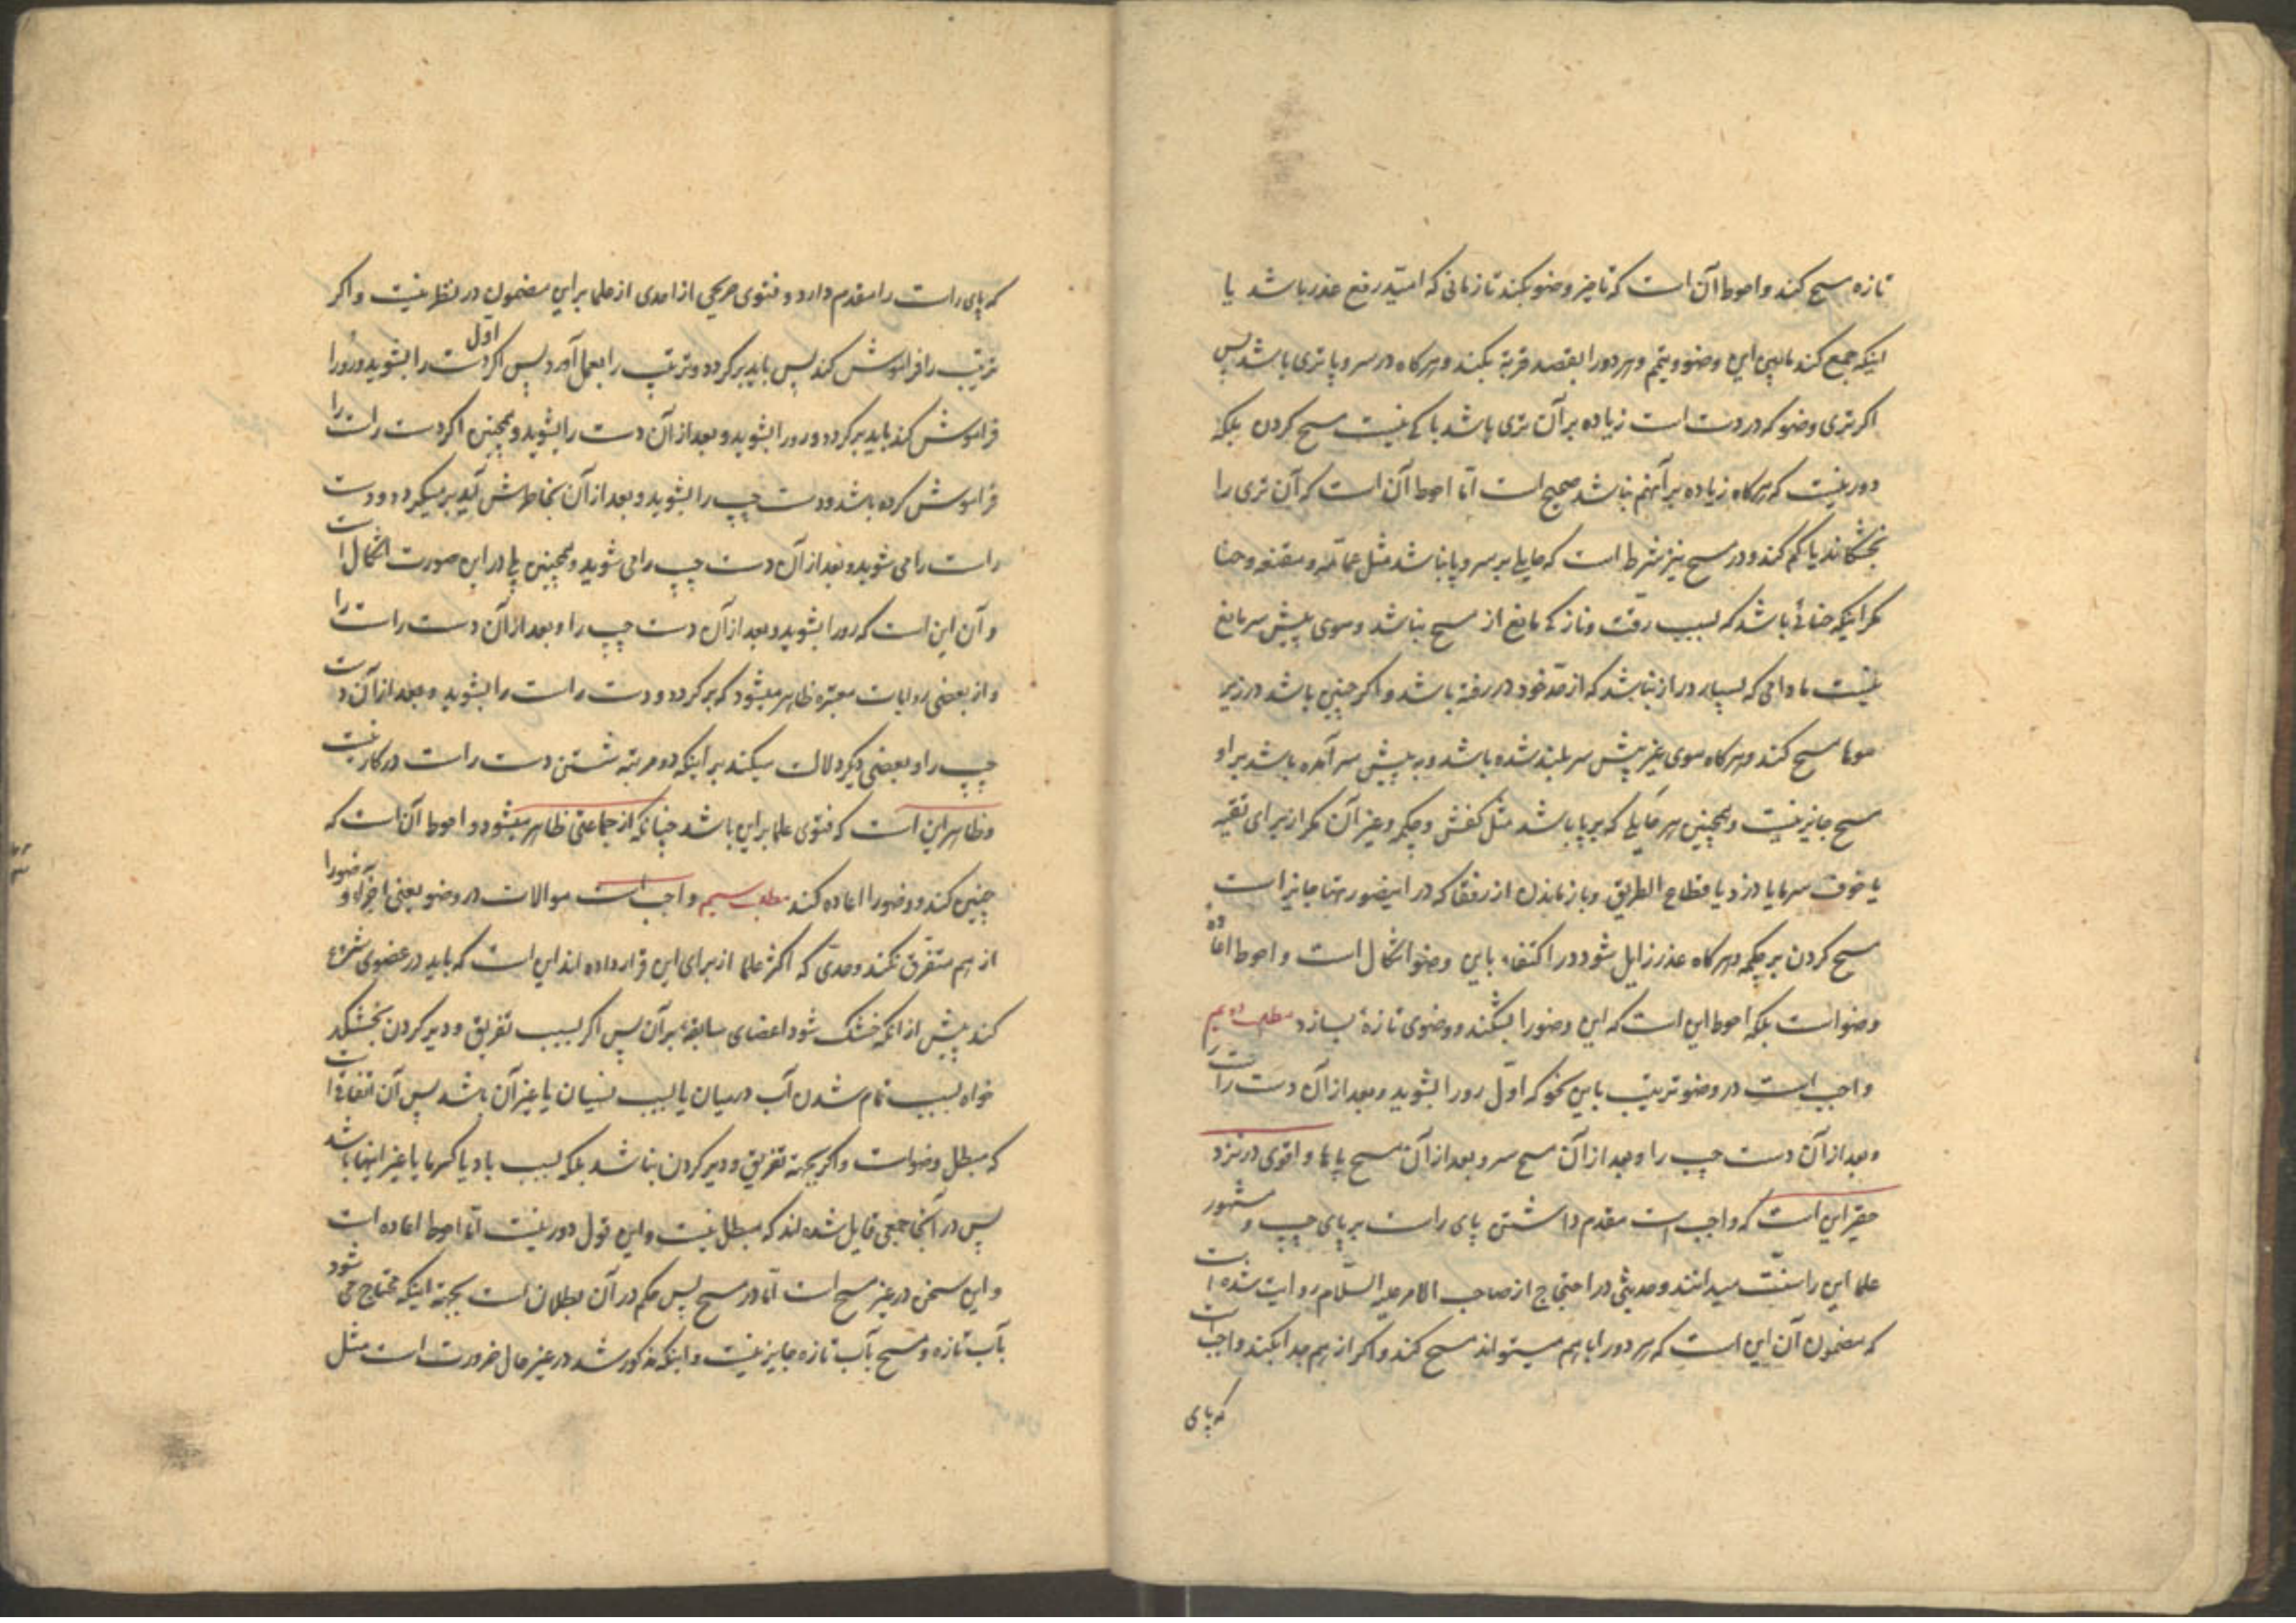 تازه مسح کند و احوط آن است که تاخیر وضو بکند تا زمانی که امید رفع عذر باشد یا
اینکه جمع کند مابین این وضو و تیمم و هر دو را بقصد قربة بکند و هر کاه در سر و پا تری باشد پس
اکر تری وضو که در دست است زیاده بر آن تری باشد باکی نیست مسح کردن بلکه
دور نیست که هر کاه زیاده بر آنهم نباشد صحیح است اما احوط آن است که آن تری را
بخشکاند یا کم کند و در مسح نیز شرط است که حایلی بر سر و پا نباشد مثل عمامه و مقنعه و حنا
مکر اینکه حنائی باشد که بسبب رقت و نازکی مانع از مسح نباشد و موی پیش سر مانع
نیست مادامی که بسیار دراز نباشد که از حد خود در رفته باشد و اکر چنین باشد در زیر
موها مسح کند و هر کاه موی غیر پیش سر بلند شده باشد و به پیش سر آمده باشد بر او
مسح جایز نیست و همچنین هر حایلی که بر پا باشد مثل کفش و چکمه و غیر آن مکر از برای تقیه
یا خوف سرما یا دزد یا قطاع الطریق و باز ماندن از رفقا که در اینصورتها جایز است
مسح کردن بر چکمه و هر کاه عذر زایل شود در اکتفاء باین وضو اشکال است و احوط اعاده
وضو است بلکه احوط این است که این وضو را بشکند و وضوی تازة بسازد مطلب دویم
واجب است در وضو ترتیب باین نحو که اول رو را بشوید و بعد از آن دست راست را
و بعد از آن دست چپ را و بعد از آن مسح سر و بعد از آن مسح پاها و اقوی در نزد
حقیر این است که واجب است مقدم داشتن پای راست بر پای چپ و مشهور
علما این را سنت میدانند و حدیثی در احتجاج از صاحب الامر علیه السلام روایت شده است
که مضمون آن این است که هر دو را با هم میتواند مسح کند و اکر از هم جدا بکند واجب است
که پای
که پای راست را مقدم دارد و فتوی صریحی از احدی از علما بر این مضمون در نظر نیست و اکر
ترتیب را فراموش کند پس باید بر کردد و ترتیب را بعمل آورد پس اکر اول دست را بشوید و رو را
فراموش کند باید بر کردد و رو را بشوید و بعد از آن دست را بشوید و همچنین اکر دست راست را
فراموش کرده باشد و دست چپ را بشوید و بعد از آن بخاطرش آید بر میکردد و دست
راست را می شوید و بعد از آن دست چپ را می شوید و همچنین بلی در این صورت اشکال است
و آن این است که رو را بشوید و بعد از آن دست چپ را و بعد از آن دست راست را
و از بعضی روایات معتبره ظاهر میشود که بر کردد و دست راست را بشوید و بعد از آن دست
چپ را و بعضی دیکر دلالت میکند بر اینکه دو مرتبه شستن دست راست در کار نیست
و ظاهر این است که فتوی علما بر این باشد چنانکه از جماعتی ظاهر میشود و احوط آن است که
چنین کند و وضو را اعاده کند مطلب سیم واجب است موالات در وضو یعنی اجزاء وضو را
از هم متفرق نکند و حدی که اکثر علما از برای این قرار داده اند این است که باید در عضوی شروع
کند پیش از آنکه خشک شود اعضای سابقه بر آن پس اکر بسبب تفریق و دیر کردن بخشکد
خواه بسبب تمام شدن آب در میان یا بسبب نسیان یا غیر آن باشد پس آن اتفاقی است
که مبطل وضو است و اکر بجهة تفریق و دیر کردن نباشد بلکه بسبب باد یا کرما یا غیر اینها باشد
پس در آنجا جمعی قایل شده اند که مبطل نیست و این قول دور نیست اما احوط اعاده است
و این سخن در غیر مسح است اما در مسح پس حکم در آن بطلان است بجهة اینکه محتاج می شود
بآب تازه و مسح بآب تازه جایز نیست و اینکه مذکور شد در غیر حال ضرورت است مثل